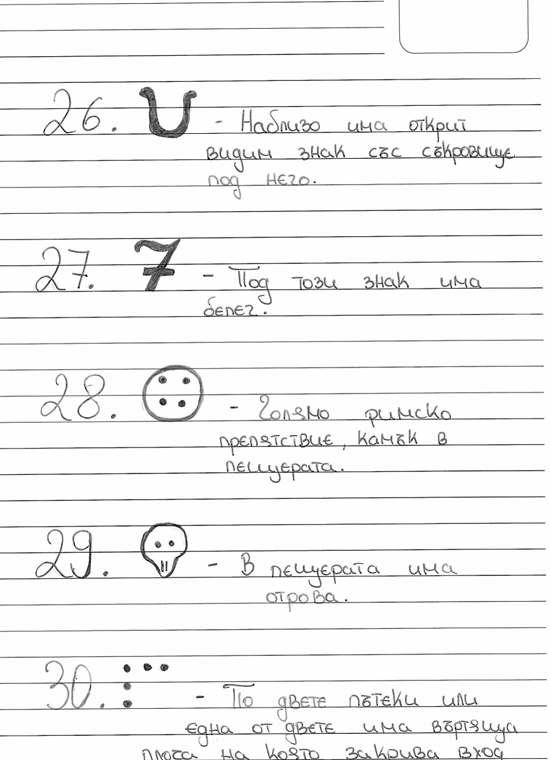 26. - Наблизо има открит
видим знак със съкровище
под него.
27. 7 - Под този знак има
белег.
28. - Голямо римско
препятствие, камък в
пещерата.
29. - В пещерата има
отрова.
30. - По двете пътеки или
една от двете има въртяща
плоча на която закрива вход